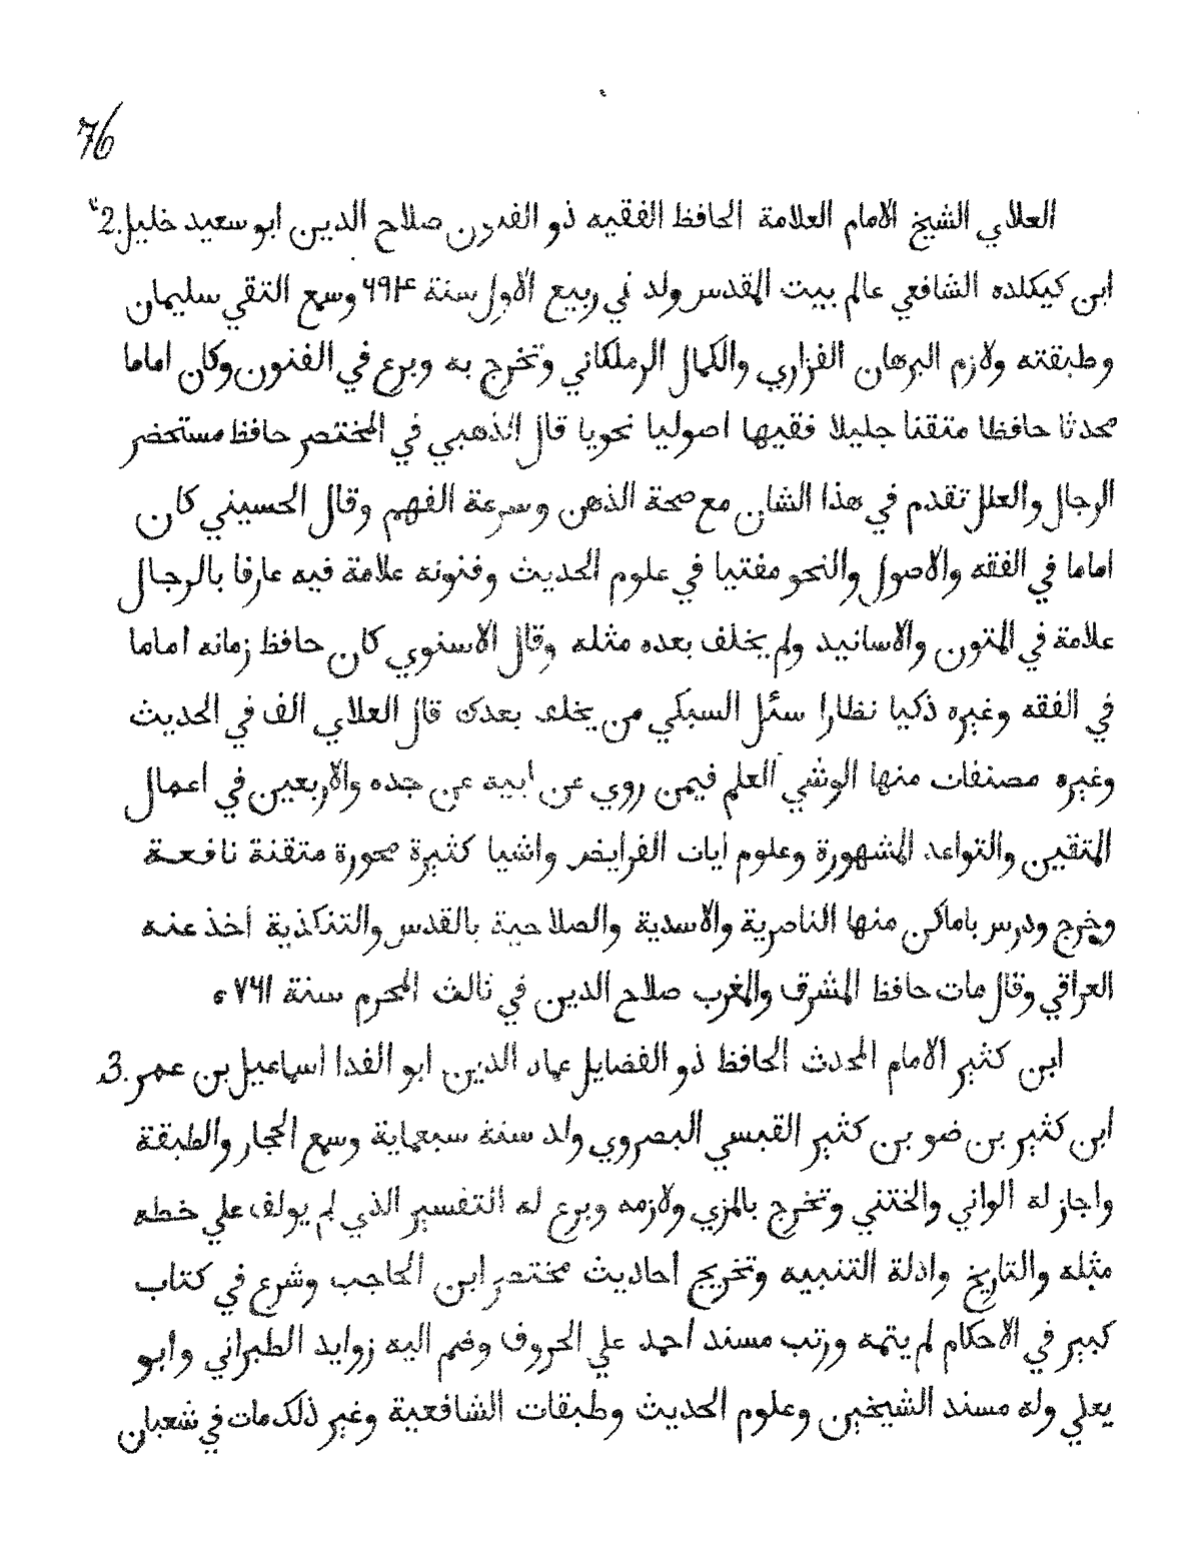 76
2. العلاي الشيخ الامام العلامة الحافظ الفقيه ذو الفنون صلاح الدين ابو سعيد خليل
ابن كيكلده الشافعي عالم بيت المقدس ولد في ربيع الاول سنة ٦٩٤ وسمع التقي سليمان
وطبقته ولازم البرهان الفزاري والكمال الزملكاني وتخرج به وبرع في الفنون وكان اماما
محدثا حافظا متقنا جليلا فقيها اصوليا نحويا قال الذهبي في المختصر حافظ مستحضر
الرجال والعلل تقدم في هذا الشان مع صحة الذهن وسرعة الفهم وقال الحسيني كان
اماما في الفقه والاصول والنحو مفتيا في علوم الحديث وفنونه علامة فيه عارفا بالرجال
علامة في المتون والاسانيد ولم يخلف بعده مثله وقال الاسنوي كان حافظ زمانه اماما
في الفقه وغيره ذكيا نظارا سئل السبكي من يخلف بعدك قال العلاي الف في الحديث
وغيره مصنفات منها الوشي العلم فيمن روي عن ابيه عن جده والاربعين في اعمال
المتقين والتواعد المشهورة وعلوم ايات الفرايض واشيا كثيرة محورة متقنة نافعة
وخرج ودرس باماكن منها الناصرية والاسدية والصلاحية بالقدس والتنكذية أخذ عنه
العراقي وقال مات حافظ المشرق والمغرب صلاح الدين في ثالث المحرم سنة ٧٦١ ه
3. ابن كثير الامام المحدث الحافظ ذو الفضايل عماد الدين ابو الفدا اسماعيل بن عمر
ابن كثير بن ضو بن كثير القبسي البصروي ولد سنة سبعماية وسمع الحجار والطبقة
واجاز له الواني والختني وتخرج بالمزي ولازمه وبرع له التفسير الذي لم يولف علي خطه
مثله والتاريخ وادلة التنبيه وتخريج أحاديث مختصر ابن الحاجب وشرع في كتاب
كبير في الاحكام لم يتمه ورتب مسند أحمد علي الحروف وضم اليه زوايد الطبراني وابو
يعلي وله مسند الشيخين وعلوم الحديث وطبقات الشافعية وغير ذلك مات في شعبان